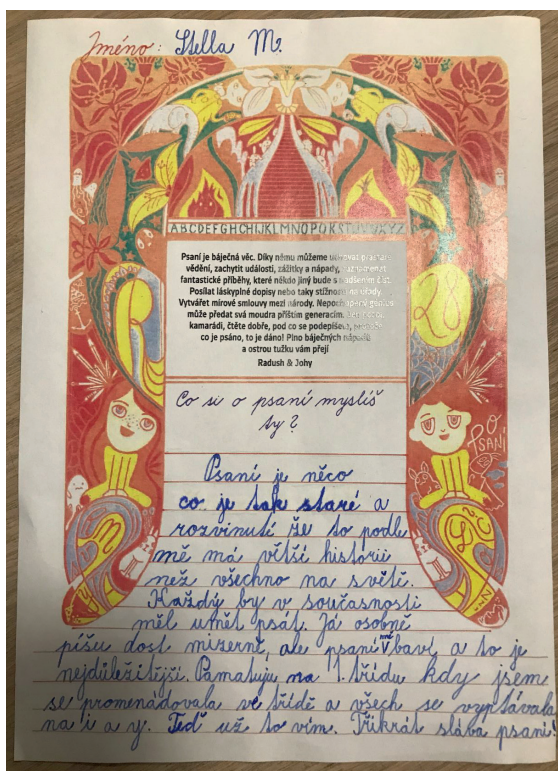 Jméno: Stella M.
ABCDEFGHCHIJKLMNOPQRSTUVWXYZ
Psaní je báječná věc. Díky němu můžeme uchovat prastaré
vědění, zachytit události, zážitky a nápady, zaznamenat
fantastické příběhy, které někdo jiný bude s nadšením číst.
Posílat láskyplné dopisy nebo taky stížnosti na úřady.
Vytvářet mírové smlouvy mezi národy. Nepochopený génius
může předat svá moudra příštím generacím.
kamarádi, čtěte dobře, pod co se podepíšete, protože
co je psáno, to je dáno! Plno báječných nápadů
a ostrou tužku vám přejí
Radush & Johy
Co si o psaní myslíš
ty?
PO
PSANÍ
Psaní je něco
co je tak staré a
rozvinuté že to podle
mě má větší historii
než všechno na světě.
Každý by v současnosti
měl umět psát. Já osobně
píšu dost mizerně, ale psaní mně baví, a to je
nejdůležitější. Pamatuju na 1. třídu kdy jsem
se promenádovala ve třídě a všech se vyptávala
na i a y. Teď už to vím. Třikrát sláva psaní!